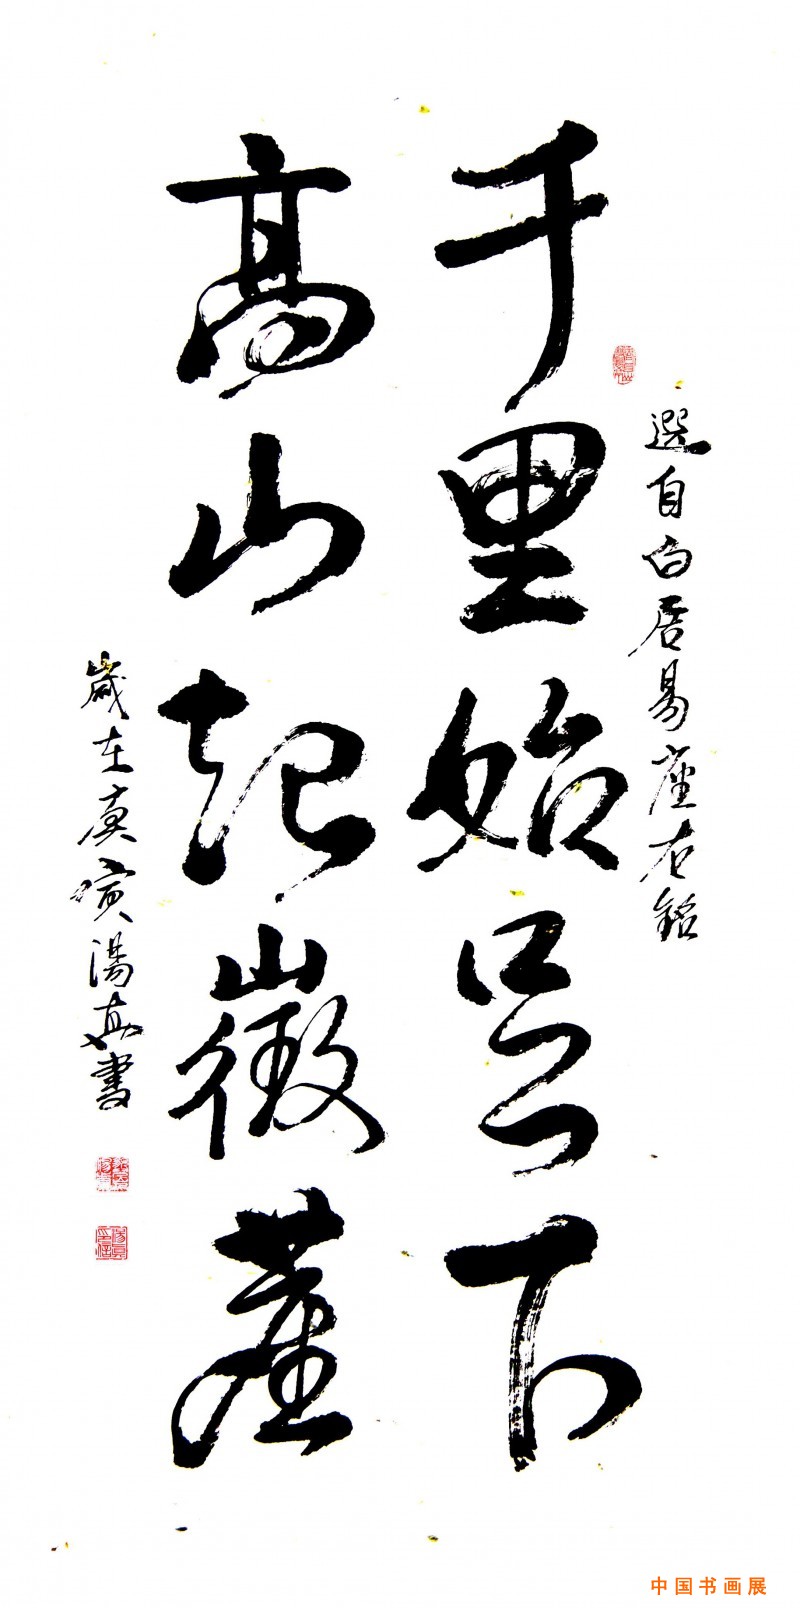 選自白居易座右銘
千里始足下
高山起微塵
歲在庚寅湯真書
中国书画展